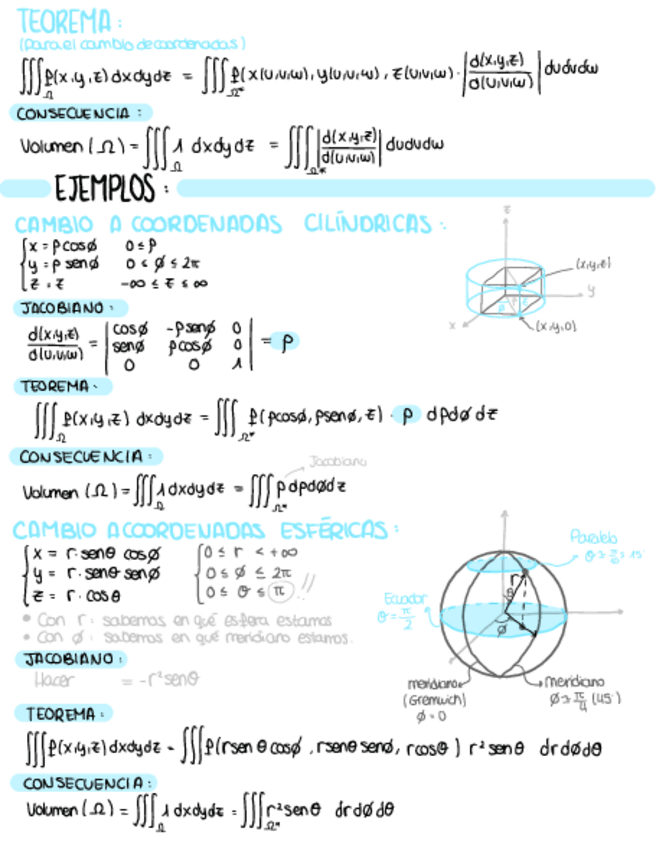 TEOREMA:
(para el cambio de coordenadas)
∭_Ω f(x,y,z) dxdydz = ∭_Ω* f(x(u,v,w), y(u,v,w), z(u,v,w) · |d(x,y,z)/d(u,v,w)| dudvdw
CONSECUENCIA:
Volumen (Ω) = ∭_Ω 1 dxdydz = ∭_Ω* |d(x,y,z)/d(u,v,w)| dudvdw
EJEMPLOS:
CAMBIO A COORDENADAS CILÍNDRICAS:
x = ρcosø 0 ≤ ρ
y = ρ senø 0 ≤ ø ≤ 2π
z = z -∞ ≤ z ≤ ∞
z
(x,y,z)
y
x
(x,y,0)
JACOBIANO:
d(x,y,z)/d(u,v,w) = |cosø -ρsenø 0
senø ρcosø 0
0 0 1| = ρ
TEOREMA:
∭_Ω f(x,y,z) dxdydz = ∭_Ω* f(ρcosø, ρsenø, z) · ρ dρdø dz
CONSECUENCIA:
Jacobiano
Volumen (Ω) = ∭_Ω 1 dxdydz = ∭_Ω* ρ dρdødz
CAMBIO A COORDENADAS ESFÉRICAS:
x = r · senθ cosø 0 ≤ r < +∞
y = r · senθ senø 0 ≤ ø ≤ 2π
z = r · cosθ 0 ≤ θ ≤ π
• Con r: sabemos en qué esfera estamos
• Con ø: sabemos en qué meridiano estamos.
Paralelo
Ecuador
θ = π/2
r
θ
ø
meridiano
(Gremwich)
ø = 0
meridiano
ø = π/4 (45°)
JACOBIANO:
Hacer = -r²senθ
TEOREMA:
∭_Ω f(x,y,z) dxdydz = ∭ f(rsen θ cosø, rsenθ senø, rcosθ) r² senθ drdødθ
CONSECUENCIA:
Volumen (Ω) = ∭_Ω 1 dxdydz = ∭_Ω* r²senθ drdø dθ